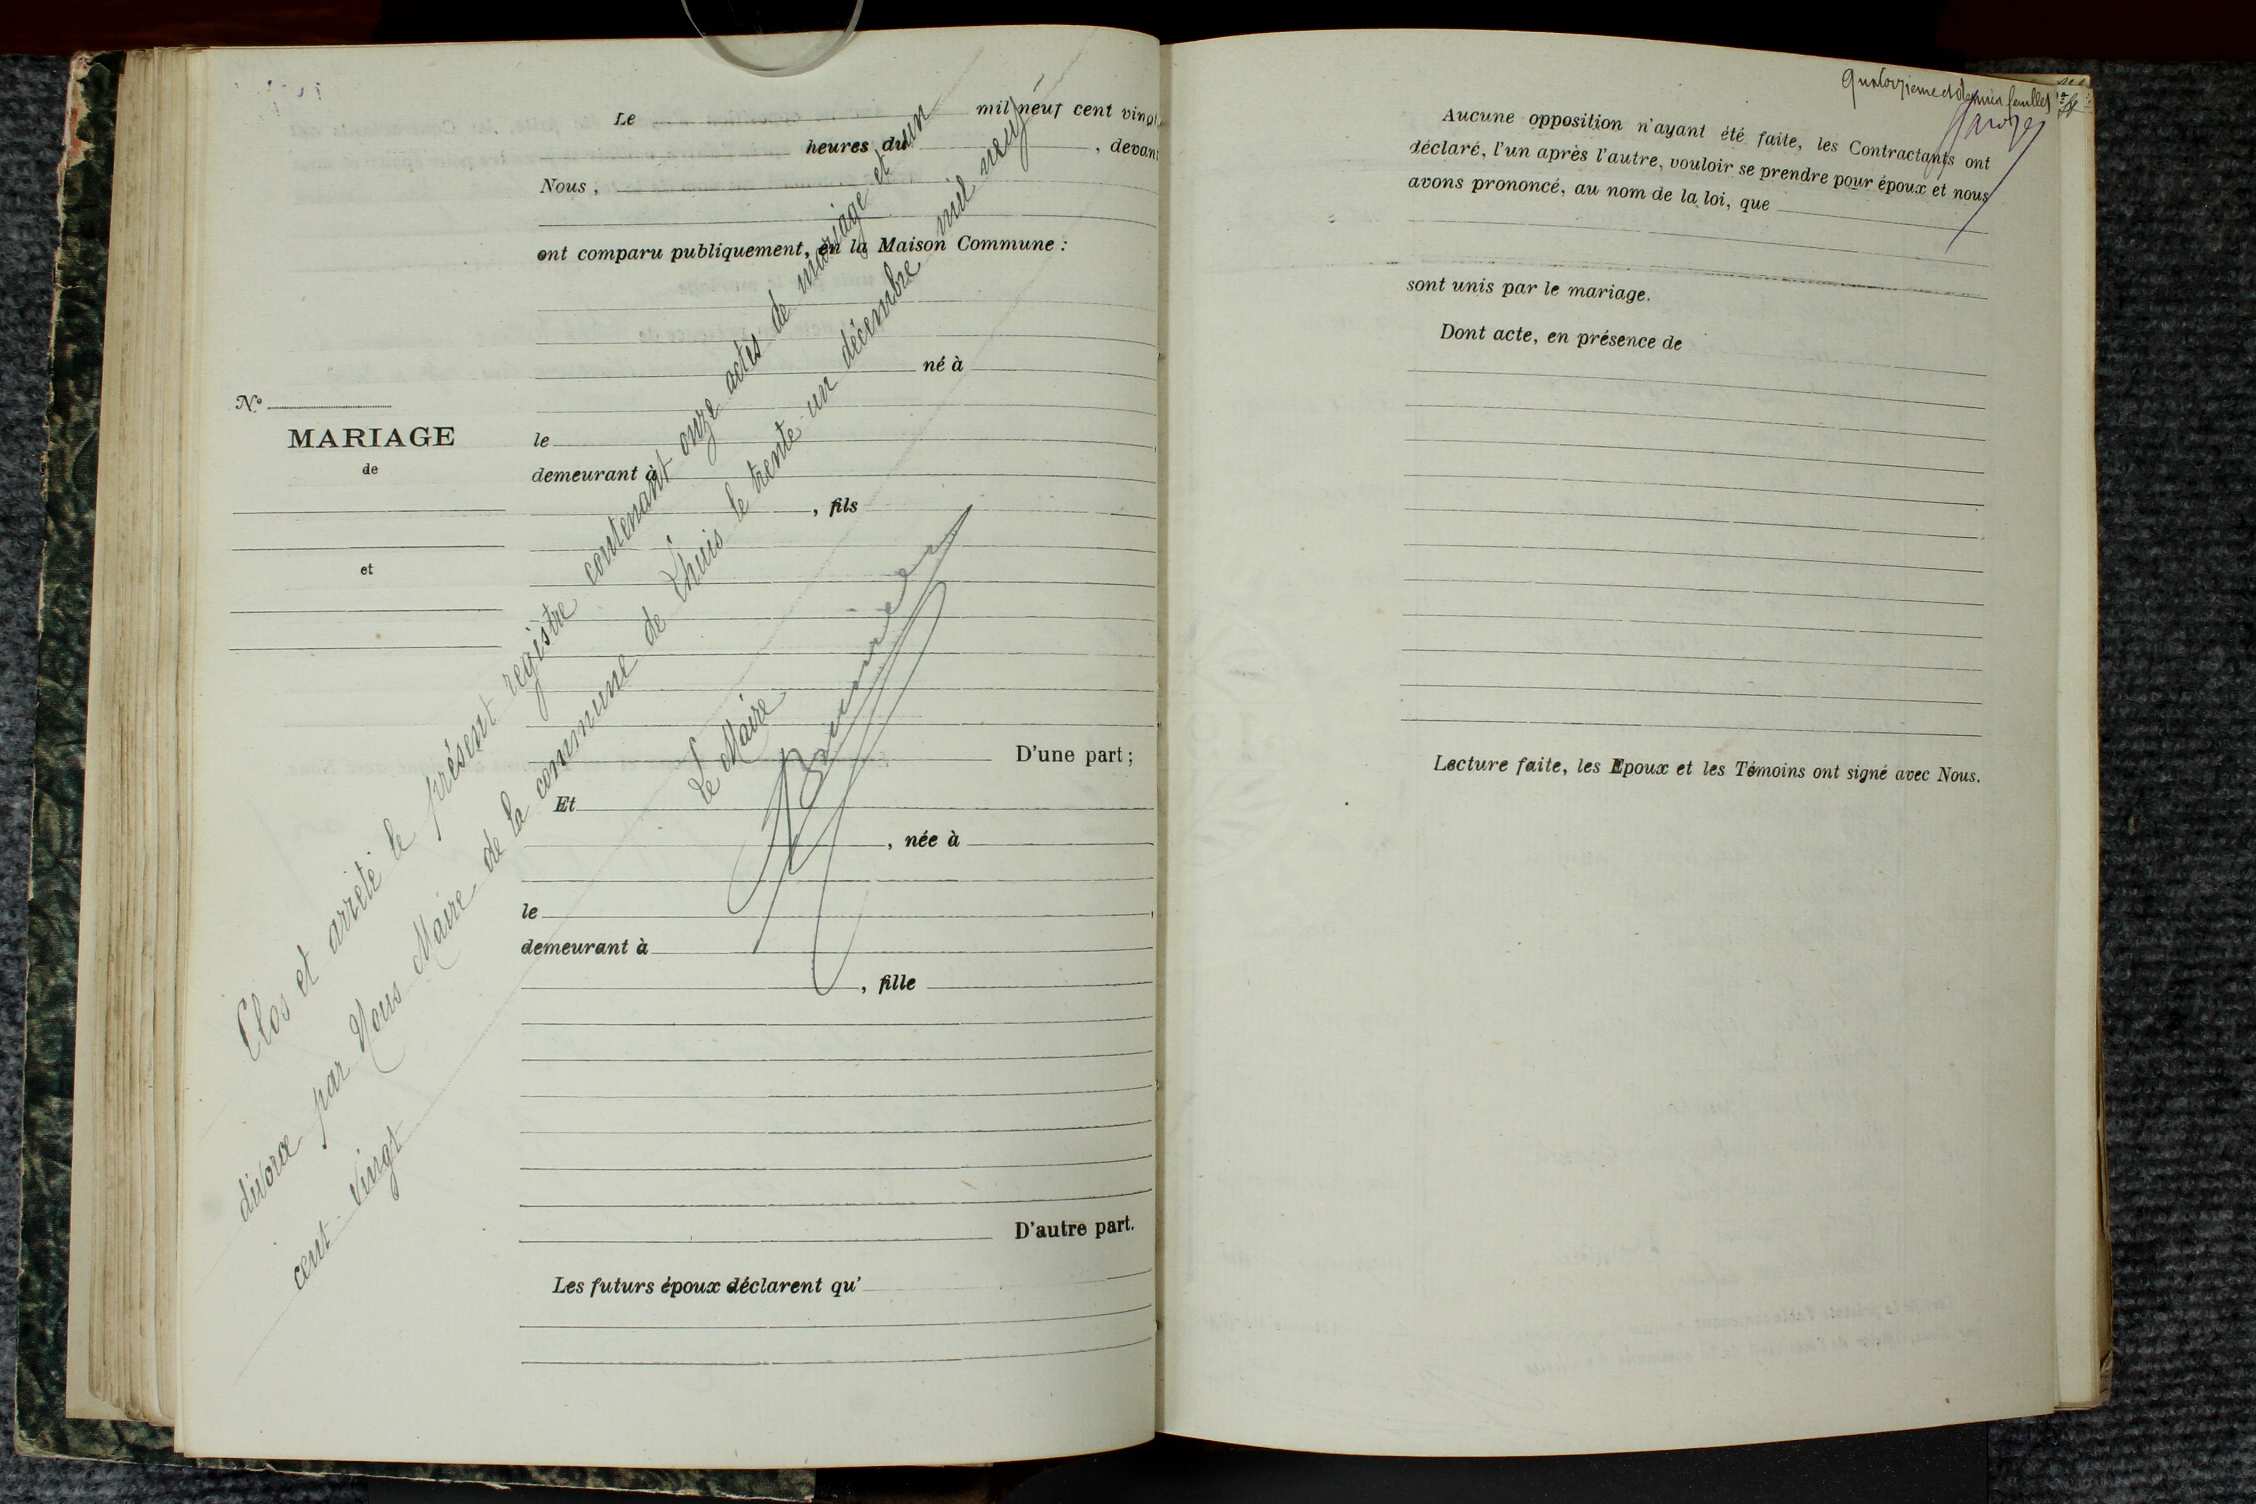 Le mil neuf cent vingt
heures du , devant
Nous,
ont comparu publiquement, en la Maison Commune :
né à
le
demeurant à
, fils
D'une part ;
Et
, née à
le
demeurant à
, fille
D'autre part.
Les futurs époux déclarent qu'
N°
MARIAGE
de
et
Clos et arrêté le présent registre contenant onze actes de mariage et un
divorce par Nous Maire de la commune de Lhuis le trente-un décembre mil neuf
cent-vingt
Le Maire
Quatorzième et dernier feuillet
Aucune opposition n'ayant été faite, les Contractants ont
déclaré, l'un après l'autre, vouloir se prendre pour époux et nous
avons prononcé, au nom de la loi, que
sont unis par le mariage.
Dont acte, en présence de
Lecture faite, les Epoux et les Témoins ont signé avec Nous.